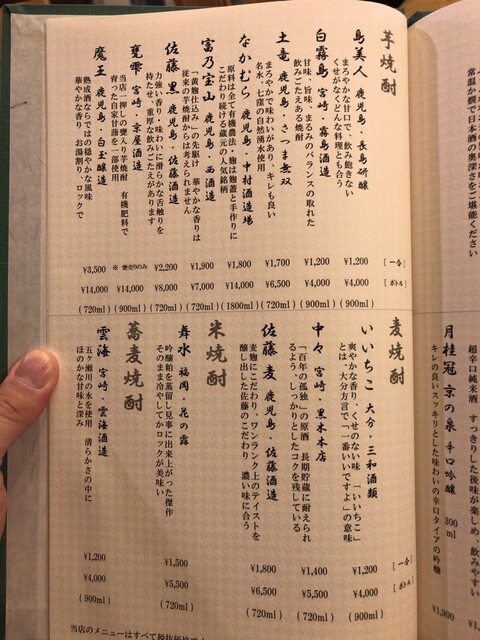 芋焼酎
［一合］ ［ボトル］
島美人 鹿児島・長島研醸
まろやかな甘口で、飲み飽きない
くせがなくどんな料理にも合う
¥1,200 ¥4,000 (900ml)
白霧島 宮崎・霧島酒造
甘味、旨味、まるみのバランスの取れた
飲みごたえある焼酎
¥1,200 ¥4,000 (900ml)
土竜 鹿児島・さつま無双
まろやかで味わいがあり、キレも良い
名水、七窪の自然湧水使用
¥1,700 ¥6,500 (720ml)
なかむら 鹿児島・中村酒造場
原料は全て有機農法、麹は麹蓋と手作りに
こだわり続ける蔵元の人気銘柄
¥1,800 ¥14,000 (1800ml)
富乃宝山 鹿児島・西酒造
「黄麹仕込み」の先駆け 華やかな香りは
従来の芋焼酎からは考えられません
¥1,900 ¥7,000 (720ml)
佐藤 黒 鹿児島・佐藤酒造
力強い香り・味わいに滑らかな舌触りを
持たせ、重厚な飲みごたえがあります
¥2,200 ¥8,000 (720ml)
甕雫 宮崎・京屋酒造
当店一押しの甕入り芋焼酎 有機肥料で
育った自家甘藷を一部使用
※甕売りのみ ¥14,000 (900ml)
魔王 鹿児島・白玉醸造
熟成酒ならではの穏やかな風味
華やかな香り お湯割り、ロックで
¥3,500 ¥14,000 (720ml)
麦焼酎
［一合］ ［ボトル］
いいちこ 大分・三和酒類
爽やかな香り、くせのない味 「いいちこ」
とは、大分方言で「一番いいですよ」の意味
¥1,200 ¥4,000 (900ml)
中々 宮崎・黒木本店
「百年の孤独」の原酒 長期貯蔵に耐えられ
るよう、しっかりとしたコクを残している
¥1,400 ¥5,500 (720ml)
佐藤 麦 鹿児島・佐藤酒造
麦麹にこだわり、ワンランク上のテイストを
醸し出した佐藤のこだわり 濃い味に合う
¥1,800 ¥6,500 (720ml)
米焼酎
舞水 福岡・花の露
吟醸粕を蒸留し見事に出来上がった傑作
そのまま冷やしてかロックが美味い
¥1,500 ¥5,500 (720ml)
蕎麦焼酎
雲海 宮崎・雲海酒造
五ヶ瀬川の水を使用 清らかさの中に
ほのかな甘味と深み
¥1,200 ¥4,000 (900ml)
当店のメニューはすべて税抜価格で
常温か燗で日本酒の奥深さをご堪能ください
超辛口純米酒 すっきりした後味が楽しめ、飲みやすい
月桂冠 京の泉 辛口吟醸 300ml
キレの良いスッキリとした味わいの辛口タイプの吟醸
¥1,900